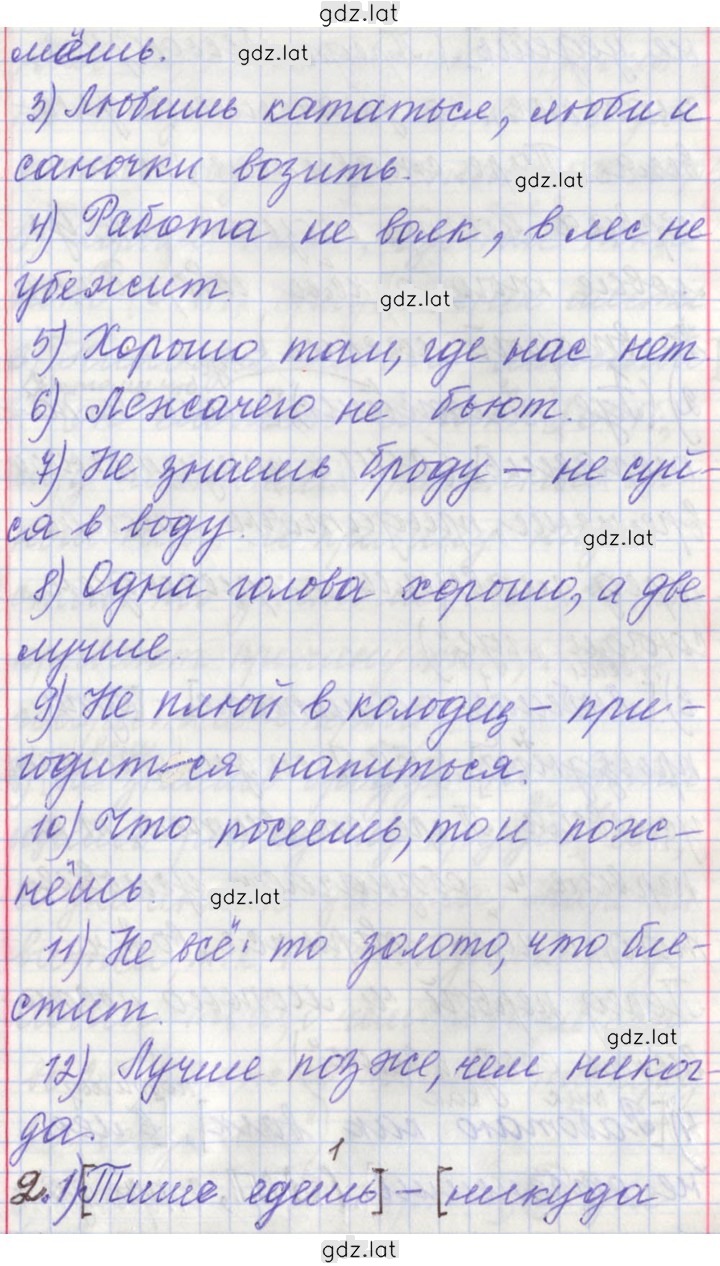 gdz.lat
мёшь.
gdz.lat
3) Любишь кататься, люби и
саночки возить.
gdz.lat
4) Работа не волк, в лес не
убежит.
gdz.lat
5) Хорошо там, где нас нет
6) Лежачего не бьют.
7) Не знаешь броду – не суй-
ся в воду.
gdz.lat
8) Одна голова хорошо, а две
лучше.
9) Не плюй в колодец – при-
годится напиться.
10) Что посеешь, то и пож-
нёшь.
gdz.lat
11) Не всё то золото, что бле-
стит.
gdz.lat
12) Лучше позже, чем никог-
да.
1
2. 1) [Тише едешь] – [никуда
gdz.lat